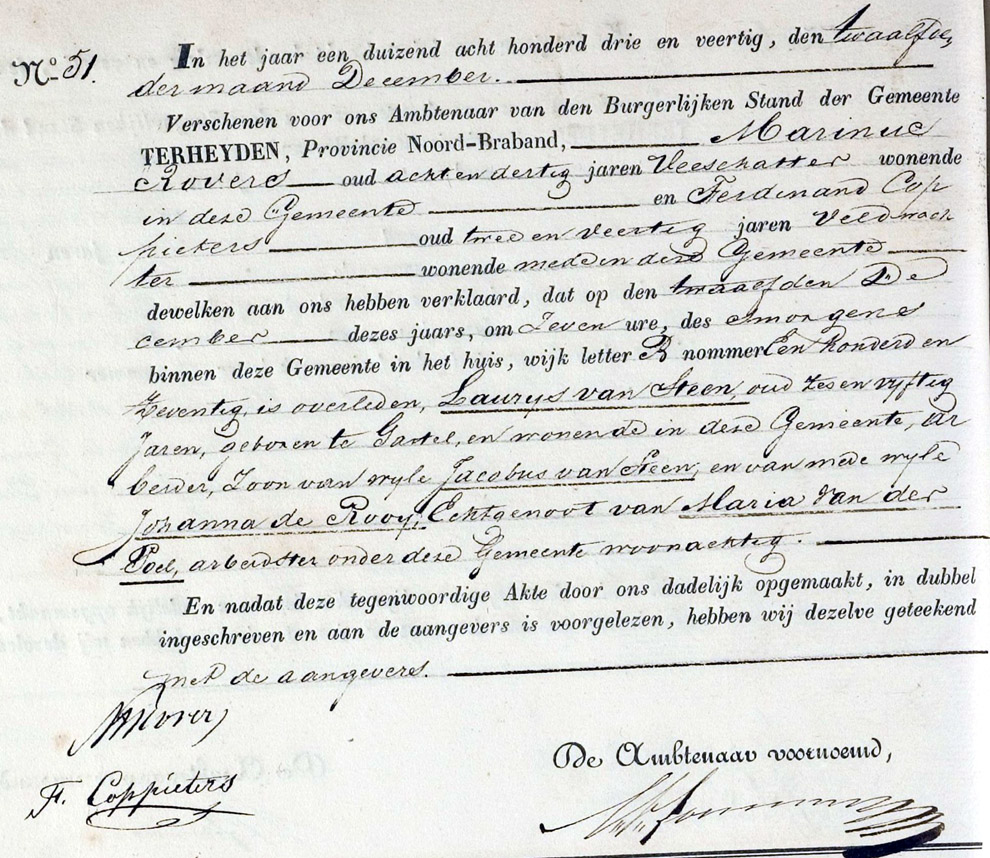 No. 51. In het jaar een duizend acht honderd drie en veertig, den twaalfde,
der maand December.
Verschenen voor ons Ambtenaar van den Burgerlijken Stand der Gemeente
TERHEYDEN, Provincie Noord-Braband, Marinus
Rovers oud acht en dertig jaren Veeschatter wonende
in deze Gemeente en Ferdinand Cop
pieters oud twee en veertig jaren Veldwach
ter wonende mede in deze Gemeente
dewelken aan ons hebben verklaard, dat op den twaalfden De
cember dezes jaars, om Zeven ure, des smorgens
binnen deze Gemeente in het huis, wijk letter B nommer Een honderd en
Zeventig, is overleden, Laurys van Steen, oud Zes en vyftig
Jaren, geboren te Gastel, en wonende in deze Gemeente, Ar
beider, Zoon van wyle Jacobus van Steen, en van mede wyle
Johanna de Rooy, Echtgenoot van Maria van der
Poel, arbeidster onder deze Gemeente woonachtig.
En nadat deze tegenwoordige Akte door ons dadelijk opgemaakt, in dubbel
ingeschreven en aan de aangevers is voorgelezen, hebben wij dezelve geteekend
met de aangevers.
MRovers
De Ambtenaar voornoemd,
F. Coppieters